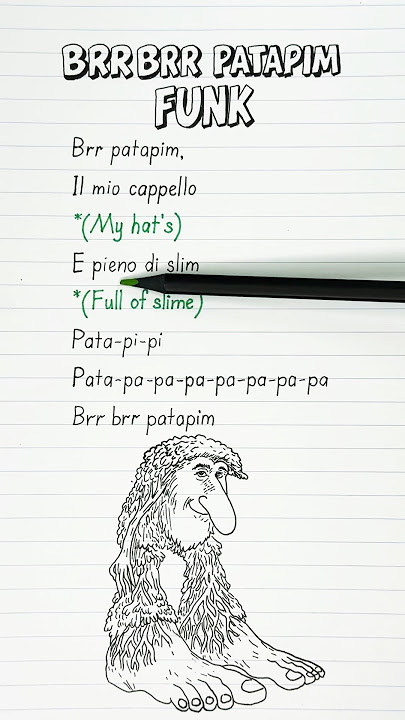 BRR BRR PATAPIM
FUNK
Brr patapim,
Il mio cappello
*(My hat's)
E pieno di slim
*(Full of slime)
Pata-pi-pi
Pata-pa-pa-pa-pa-pa-pa-pa
Brr brr patapim